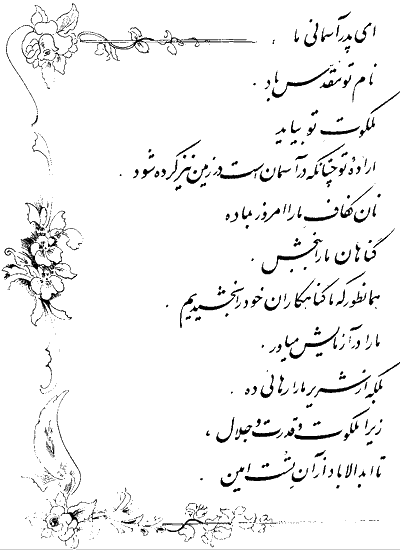 ای پدر آسمانی ما .
نام تو مقدس باد .
ملکوت تو بیاید
اراده تو چنانکه در آسمان است در زمین نیز کرده شود .
نان کفاف ما را امروز بما ده
گناهان ما را ببخش .
همانطور که ما گناهکاران خود را بخشیدیم .
ما را در آزمایش میاور .
بلکه از شریر ما را رهائی ده .
زیرا ملکوت و قدرت و جلال ،
تا ابدالاباد از آن تست امین .